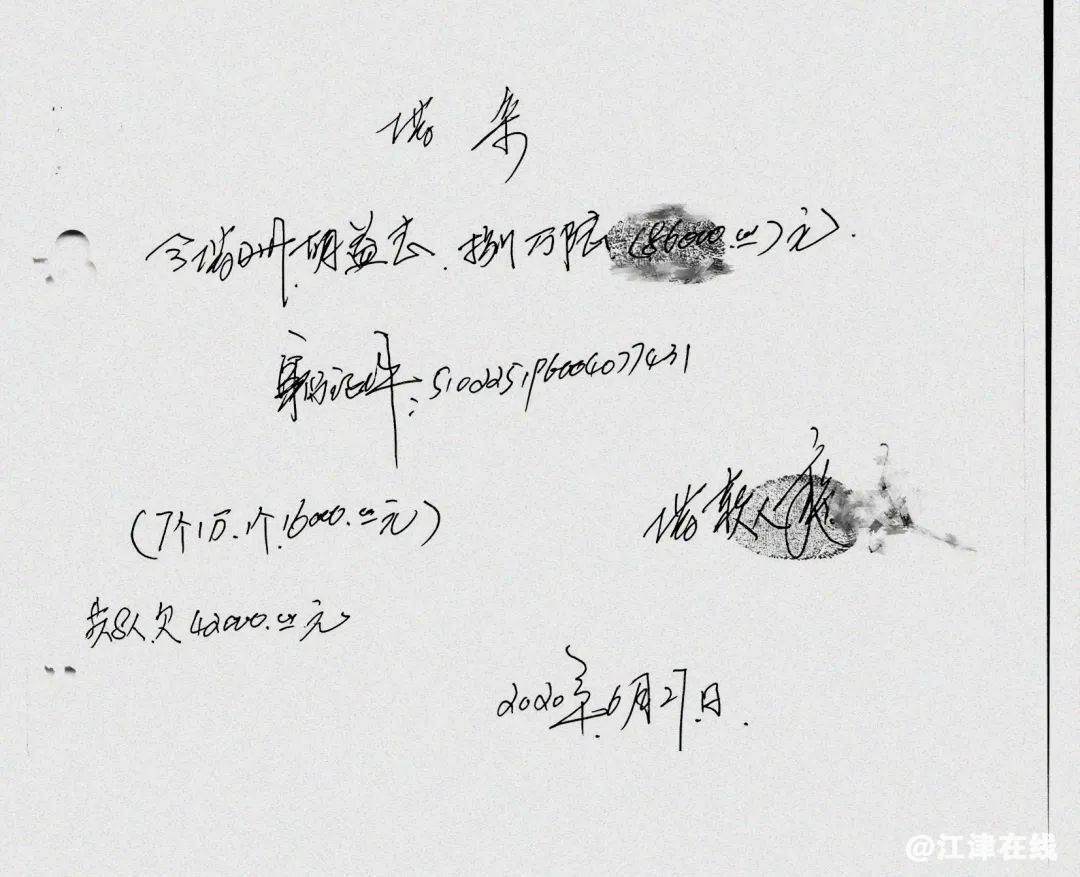 借条
今借到胡益志.捌万陆(86000.00)元.
身份证件:510225196004077431
(7个1万.1个16000.00元)
借款人
共8人欠42000.00元
2020年6月27日.
@江津在线